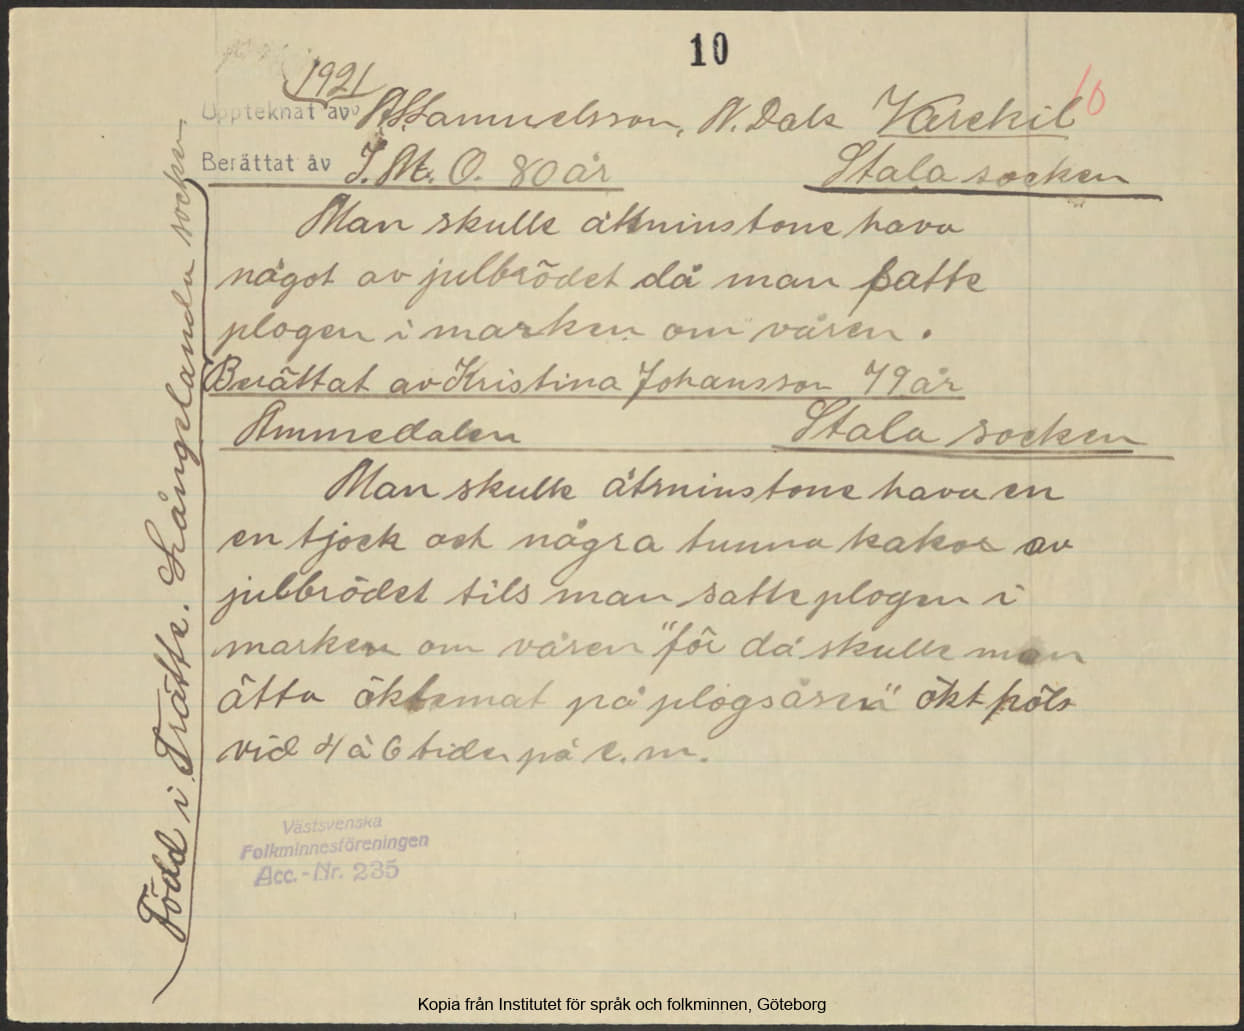 10
10
1921
Upptecknat av A. Samuelsson, N. Dala Varekil
Berättat av J. M. O. 80 år Stala socken
Man skulle åtminstone hava
något av julbrödet då man satte
plogen i marken om våren.
Berättat av Kristina Johansson 79 år
Ammedalen Stala socken
Man skulle åtminstone hava en
en tjock och några tunna kakor av
julbrödet tils man satte plogen i
marken om våren "för då skulle man
ätta öktemat på plogsåsen" ökt höls
vid 4 à 6 tiden på e.m.
Född i Trätte. Långelanda socken
Västsvenska
Folkminnesföreningen
Acc.-Nr. 235
Kopia från Institutet för språk och folkminnen, Göteborg